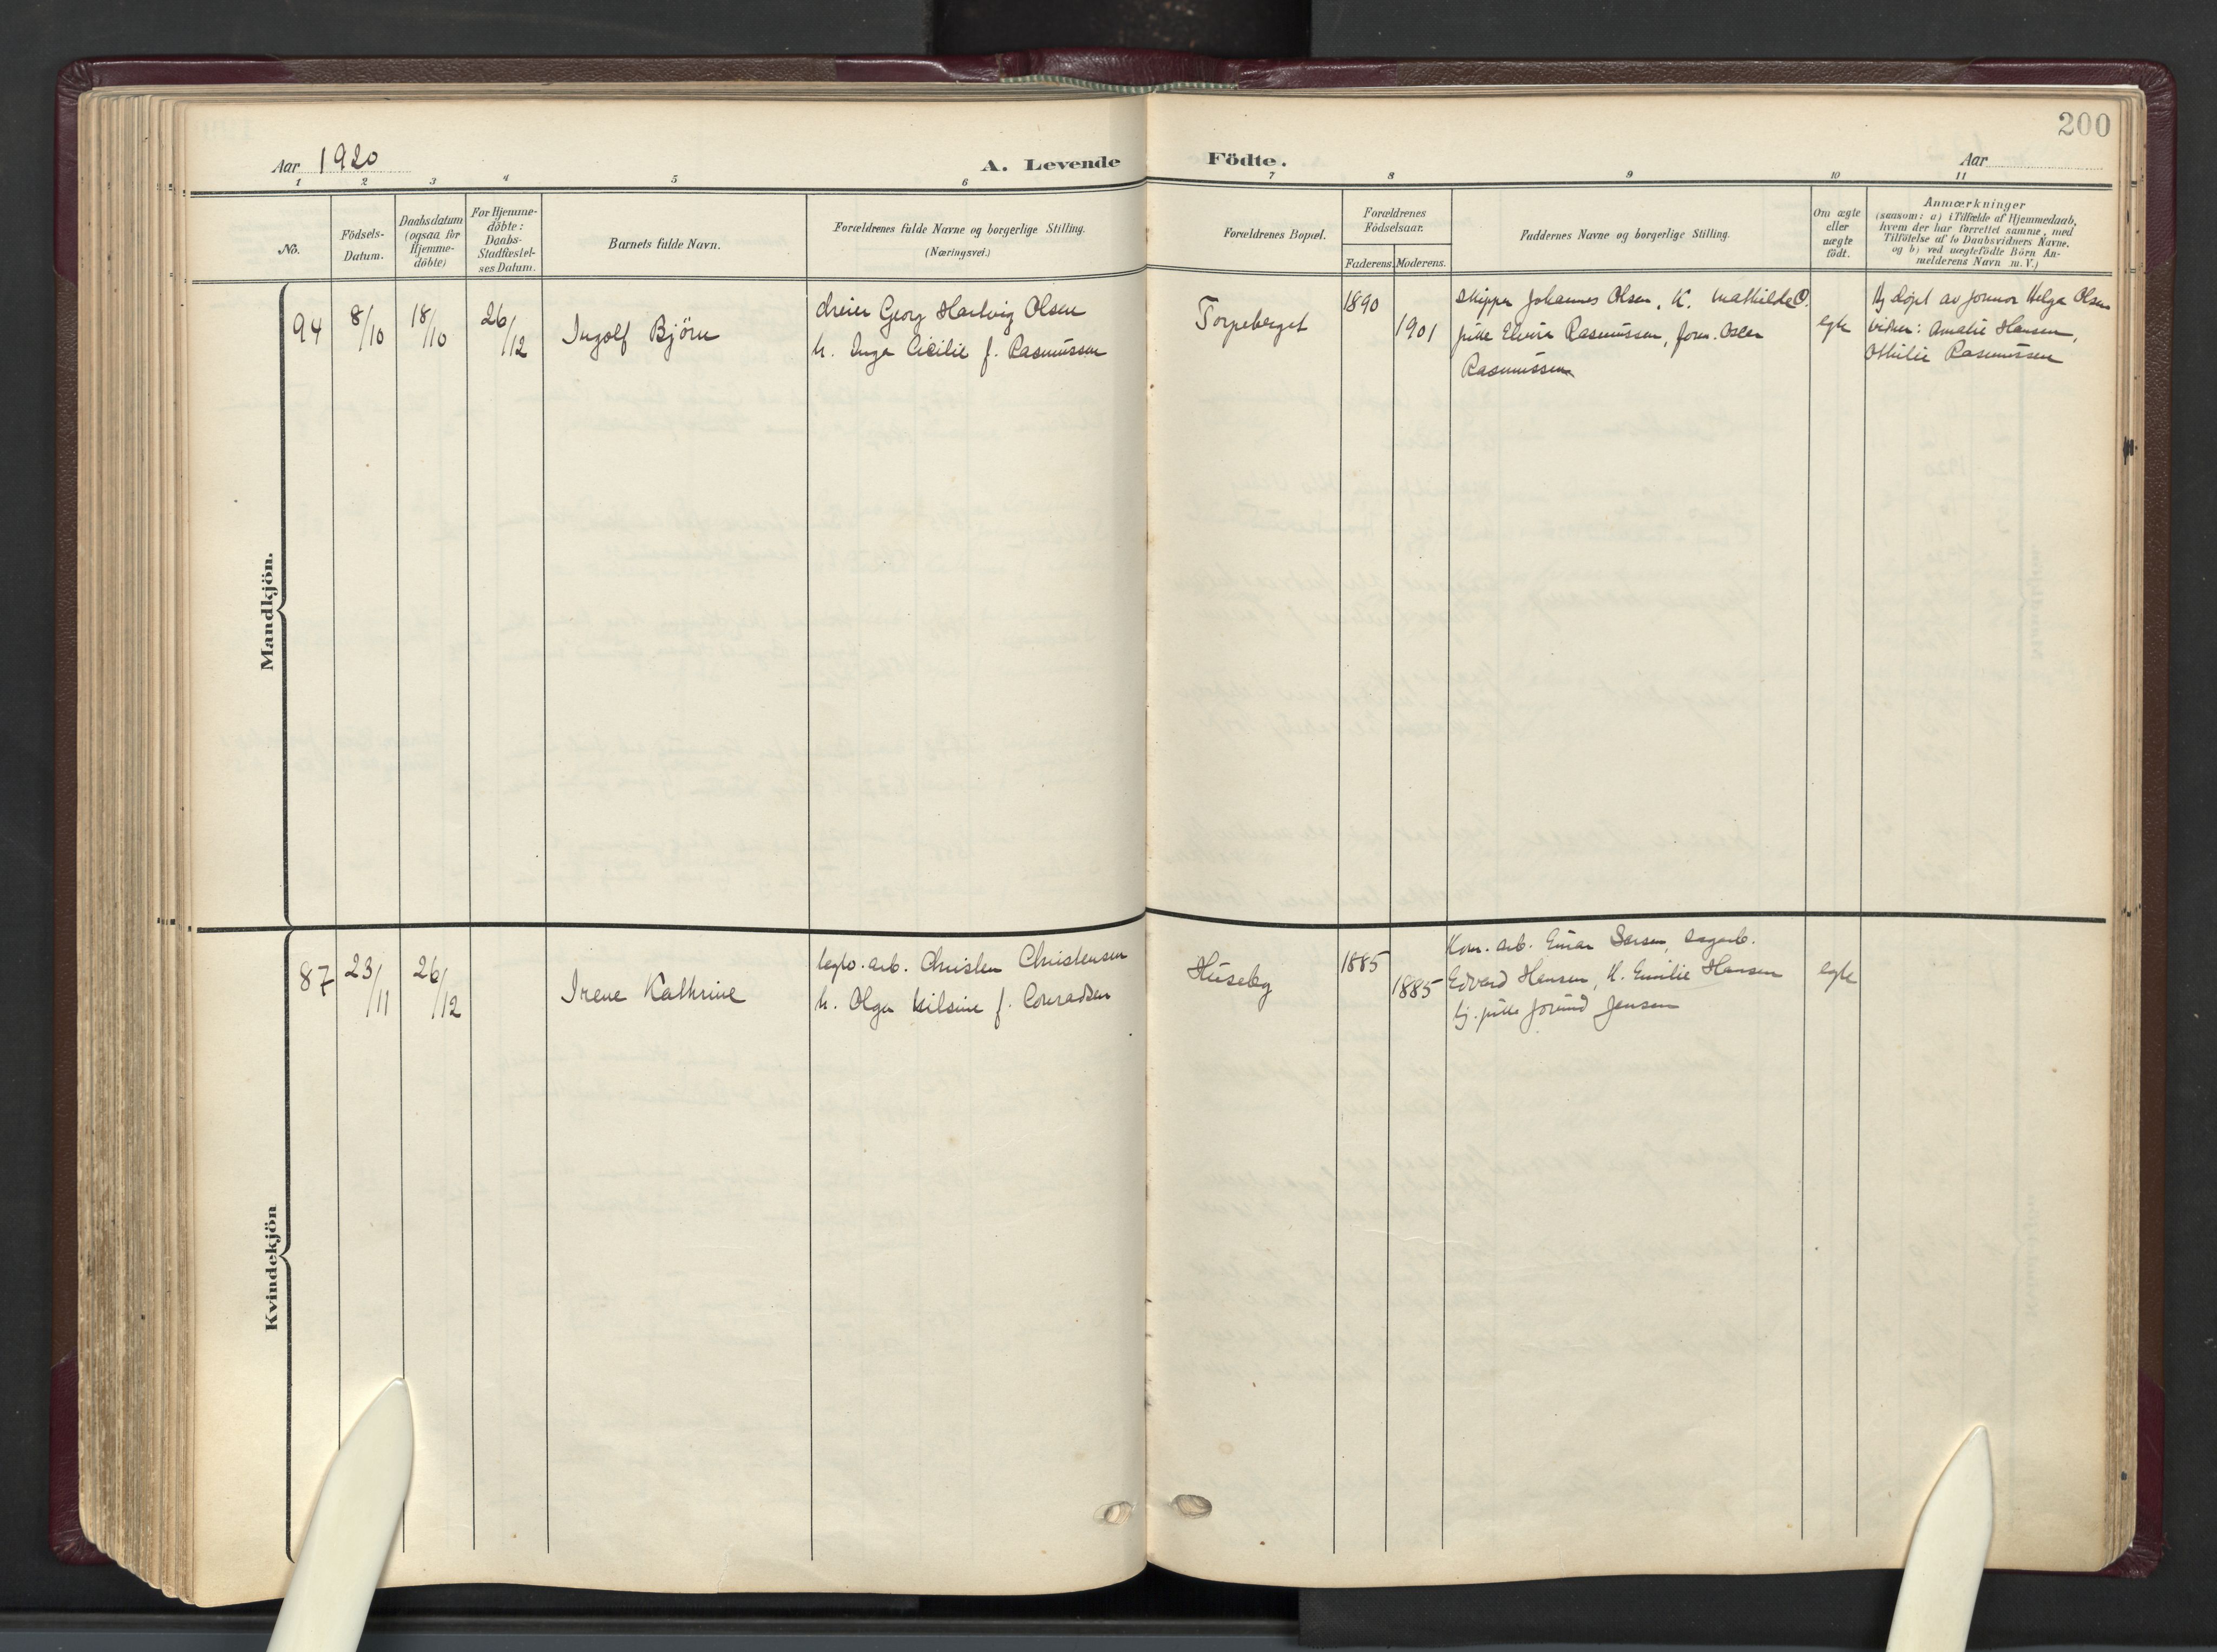 200
Aar 1920
A. Levende Födte.
Aar
1 2 3 4 5 6 7 8 9 10 11
No.
Födsels-
Datum.
Daabsdatum
(ogsaa for
Hjemme-
döbte)
For Hjemme-
döbte:
Daabs-
Stadfæstel-
ses Datum.
Barnets fulde Navn.
Forældrenes fulde Navne og borgerlige Stilling.
(Næringsvei.)
Forældrenes Bopæl.
Forældrenes
Födselsaar.
Faderens. Moderens.
Faddernes Navne og borgerlige Stilling.
Om ægte
eller
uægte
födt.
Anmærkninger
(saasom: a) i Tilfælde af Hjemmedaab,
hvem der har forrettet samme, med
Tilföielse af to Daabsvidners Navne,
og b) ved uægtefödte Börn An-
melderens Navn m. V.)
Mandkjön.
94
8/10
18/10
26/12
Ingolf Björn
dreier Georg Hartvig Olsen
h. Inga Cicilie f. Rasmussen
Torpeberget
1890
1901
Skipper Johannes Olsen, K. Mathilde O.
pike Elvira Rasmussen, form. Oscar
Rasmussen
egte
Hj. döpt av jormor Helga Olsen
vidner: Amalie Hansen,
Othilie Rasmussen
Kvindekjön
87
23/11
26/12
Irene Kathrine
teglv. arb. Christen Christensen
h. Olga Nilsine f. Conradsen
Huseby
1885
1885
Kom. arb. Einar Sarsen, sagarb.
Edvard Hansen, K. Emilie Hansen
tj. pike Jorund Jensen
egte